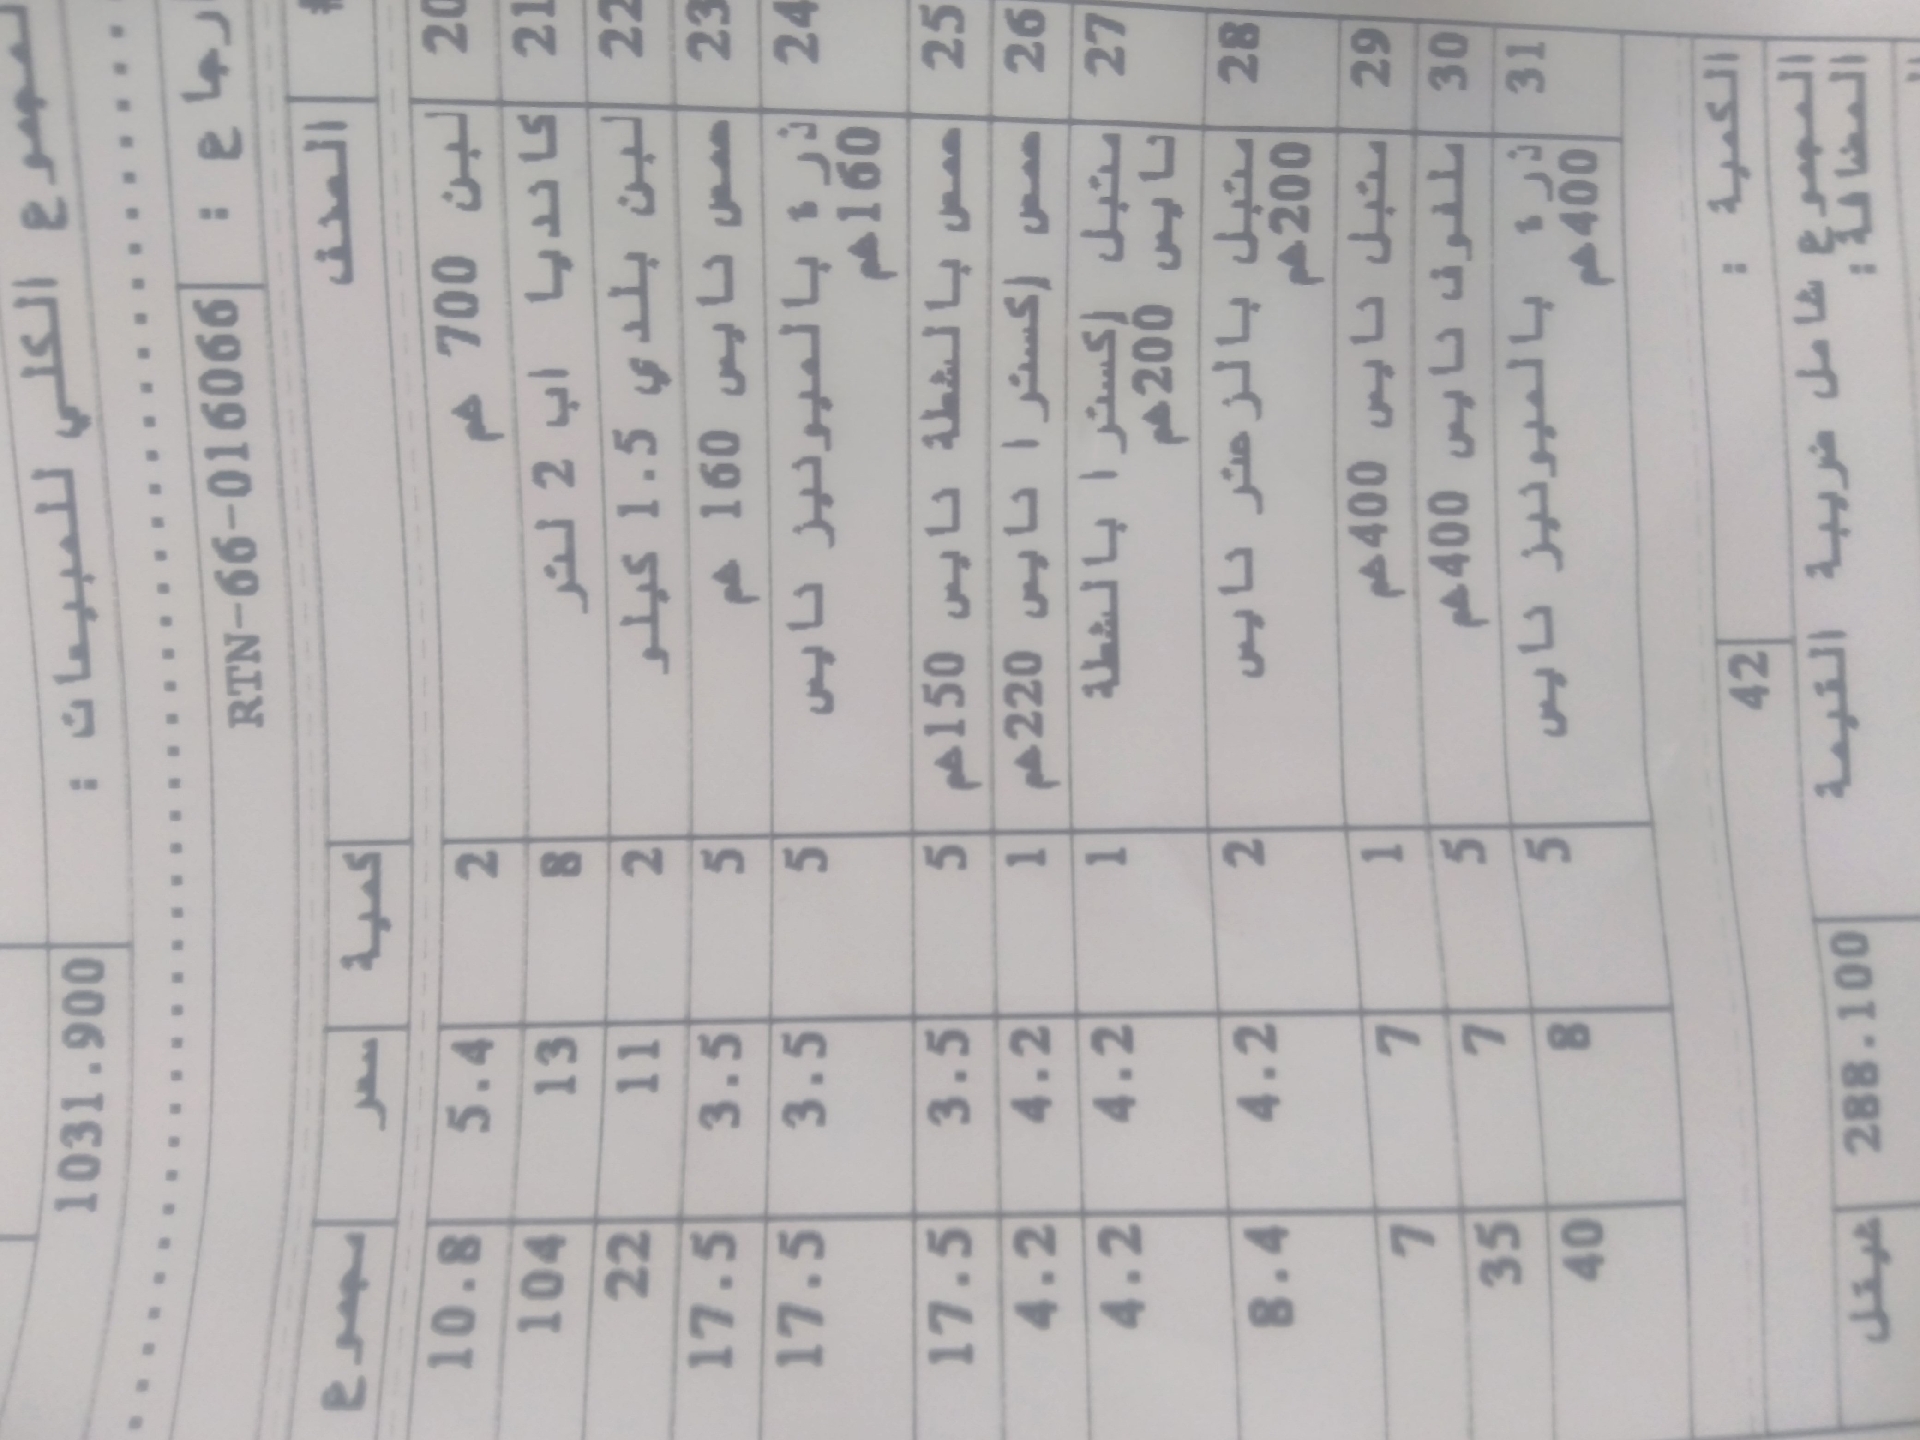 المجموع الكلي للمبيعات : 1031.900
إرجاع : RTN-66-016066
# الصنف كمية سعر مجموع
20 لبن 700 غم 2 5.4 10.8
21 كانديا اب 2 لتر 8 13 104
22 لبن بلدي 1.5 كيلو 2 11 22
23 حمص نايس 160 غم 5 3.5 17.5
24 ذرة بالميونيز نايس 5 3.5 17.5
160غم
25 حمص بالشطة نايس 150غم 5 3.5 17.5
26 حمص إكسترا نايس 220غم 1 4.2 4.2
27 متبل إكسترا بالشطة 1 4.2 4.2
نايس 200غم
28 متبل بالزعتر نايس 2 4.2 8.4
200غم
29 متبل نايس 400غم 1 7 7
30 ملفوف نايس 400غم 5 7 35
31 ذرة بالميونيز نايس 5 8 40
400غم
الكمية : 42
المجموع شامل ضريبة القيمة 288.100 شيقل
المضافة: